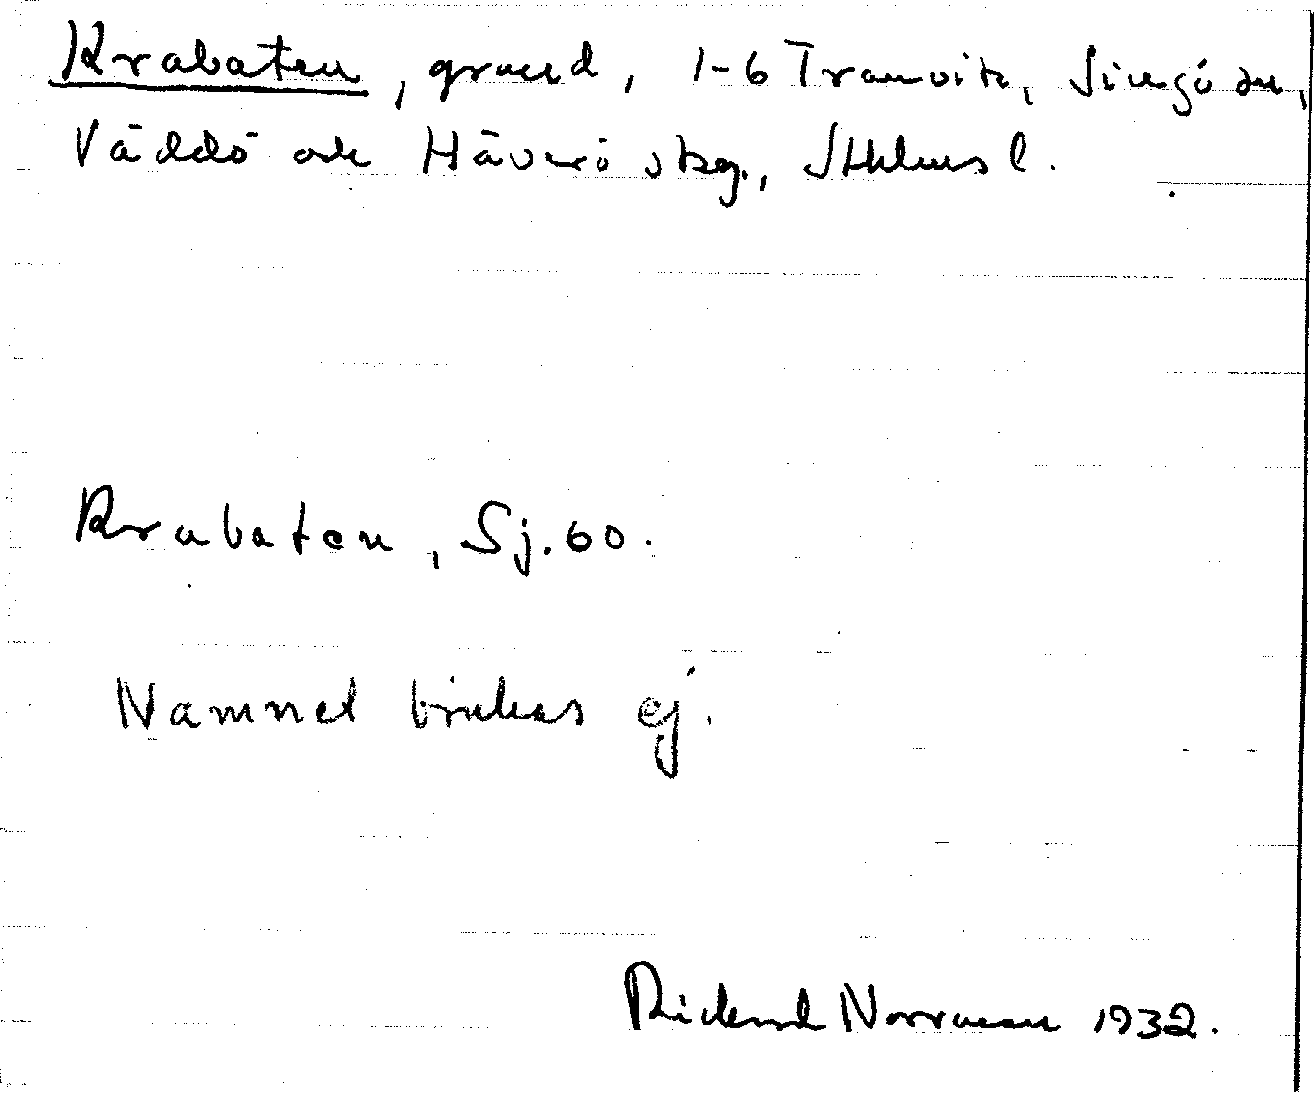 Krabaten, grund, 1-6 Tranvik, Singö sn,
Väddö och Häverö skg., Sthlms l.
Krabaten, Sj. 60.
Namnet brukas ej.
Rickard Norrman 1932.